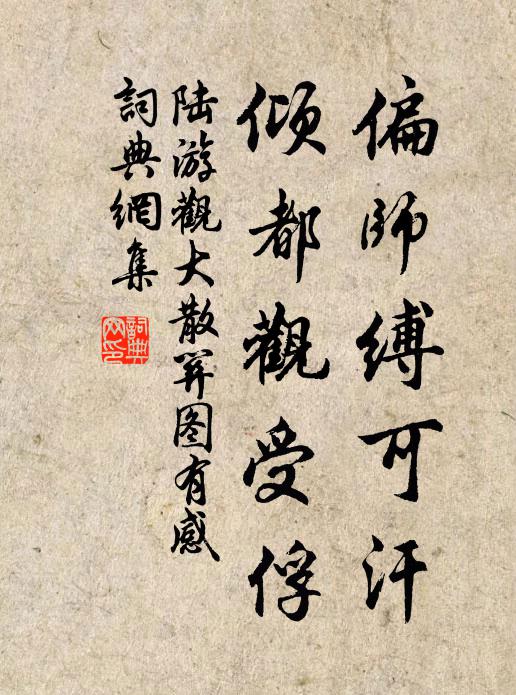 偏师缚可汗
倾都觀受俘
陆游觀大散関图有感
詞典網集
詞典
网印